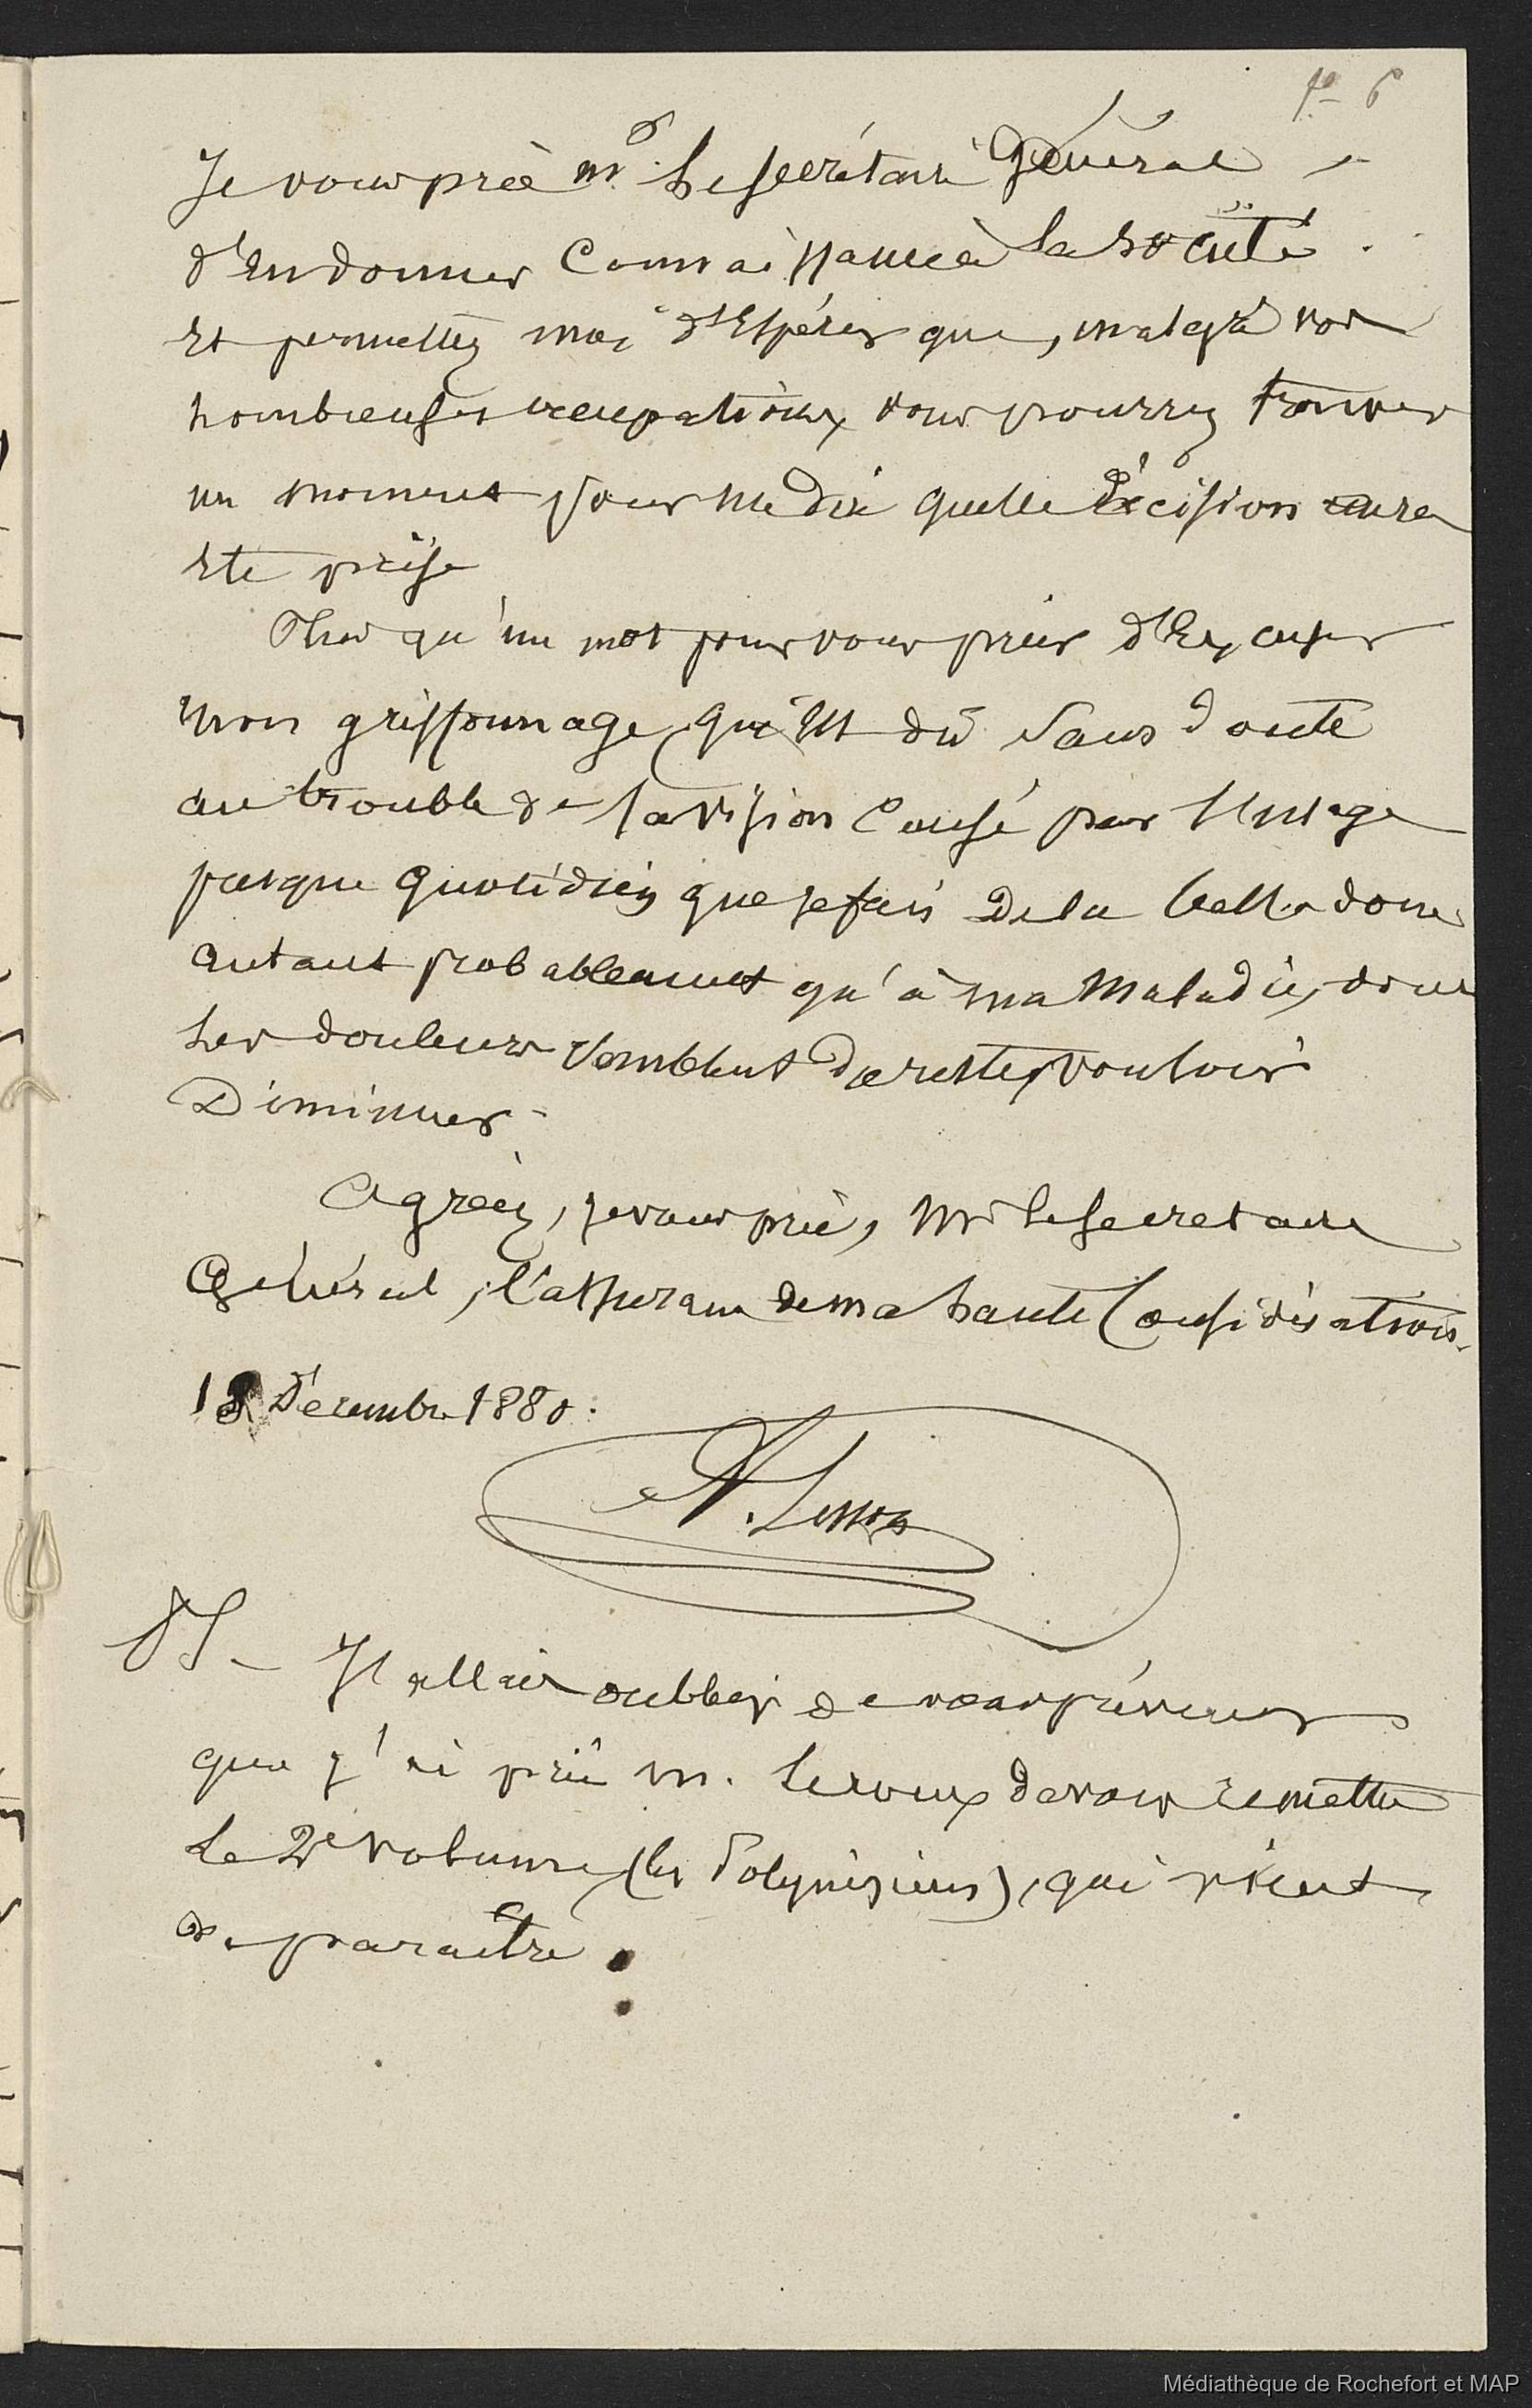 fo 6
Je vous prie Mr. le secrétaire Général
d'en donner connaissance à la société.
et permettez moi d'espérer que, malgré vos
nombreuses occupations, vous pourrez trouver
un moment pour me dire quelle décision aura
été prise
Plus qu'un mot pour vous prier d'excuser
mon griffonnage qui est dû sans doute
au trouble de la vision causé par l'usage
presque quotidien que je fais de la belladone
autant probablement qu'à ma maladie, dont
les douleurs semblent du reste, vouloir
Diminuer.
Agréez, je vous prie, Mr le Secretaire
Général, l'assurance de ma haute Considération.
18 Décembre 1880.
A. Lesson
PS - J'allais oublier de vous prévenir
que j'ai prié M. Leroux de vous remettre
le 2e volume (les Polynésiens), qui vient
de paraître.
Médiathèque de Rochefort et MAP